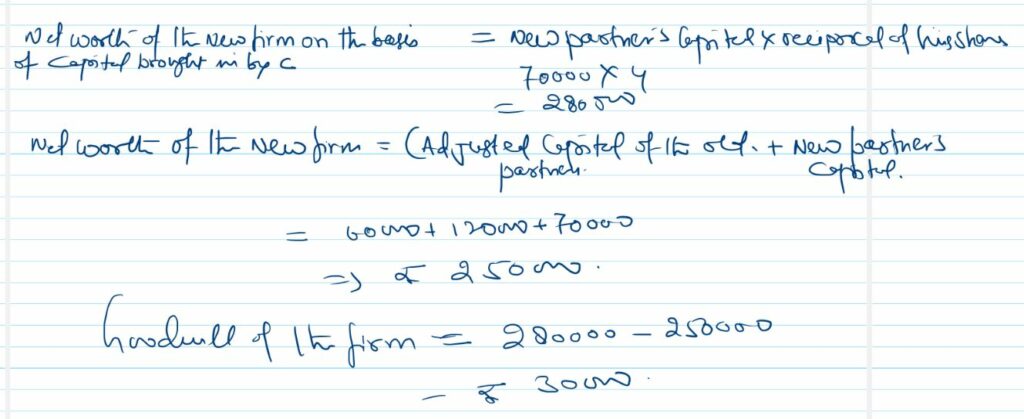 Net worth of the New firm on the basis = New partner's Capital x reciporcal of his share
of Capital brought in by C
70000 x 4
= 280000
Net worth of the New firm = (Adjusted Capital of the old. + New partner's
partner. Capital.
= 60000 + 120000 + 70000
=> ₹ 250000.
Goodwill of the firm = 280000 - 250000
- ₹ 30000.